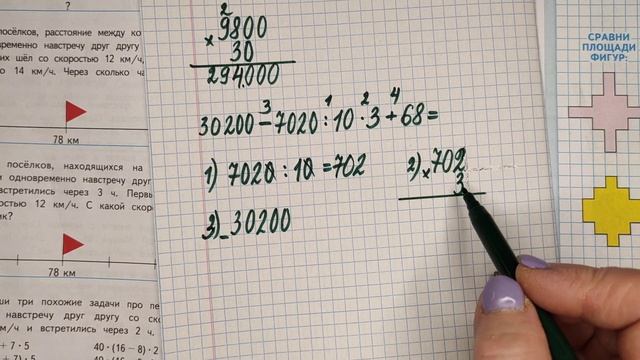 ?
посёлков, расстояние между ко
временно навстречу друг другу
их шёл со скоростью 12 км/ч,
о 14 км/ч. Через сколько ча
78 км
посёлков, находящихся на
и одновременно навстречу друг
встретились через 3 ч. Первы
остью 12 км/ч. С какой скоро
ик?
78 км
ши три похожие задачи про пе
навстречу друг другу со ско
км/ч и встретились через 2 ч.
+ 7 · 5 40 · (16 − 8) · 2
2
× 9800
30
294000
3 1 2 4
30200 − 7020 : 10 · 3 + 68 =
1) 7020 : 10 = 702
2) × 702
3
3) − 30200
СРАВНИ
ПЛОЩАДИ
ФИГУР: